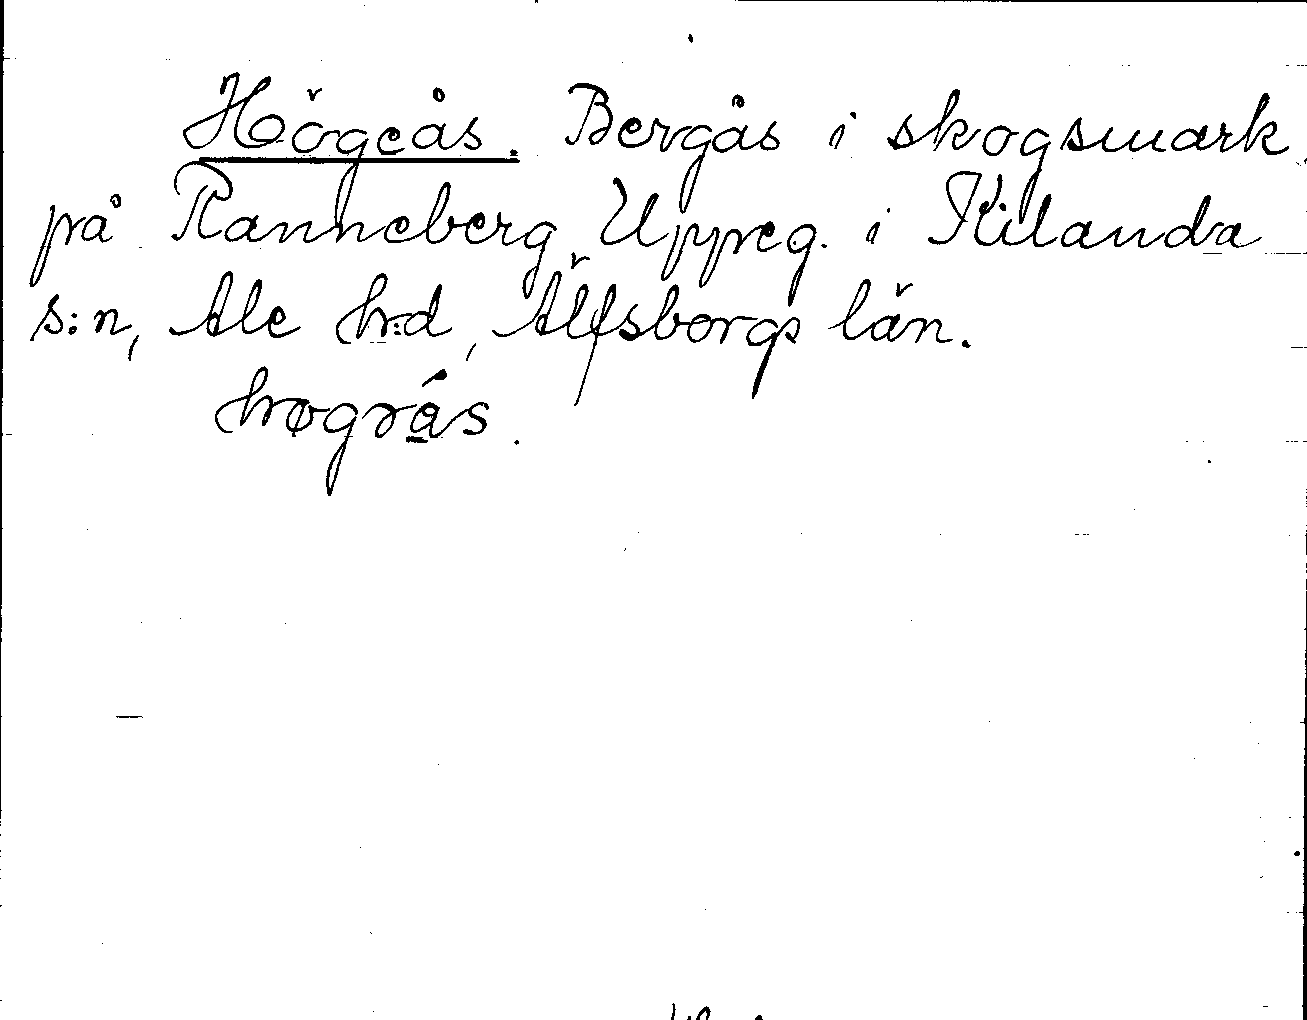 Högeås. Bergås i skogsmark
på Ranneberg Uppreg. i Kilanda
s:n, Ale h:d, Älfsborgs län.